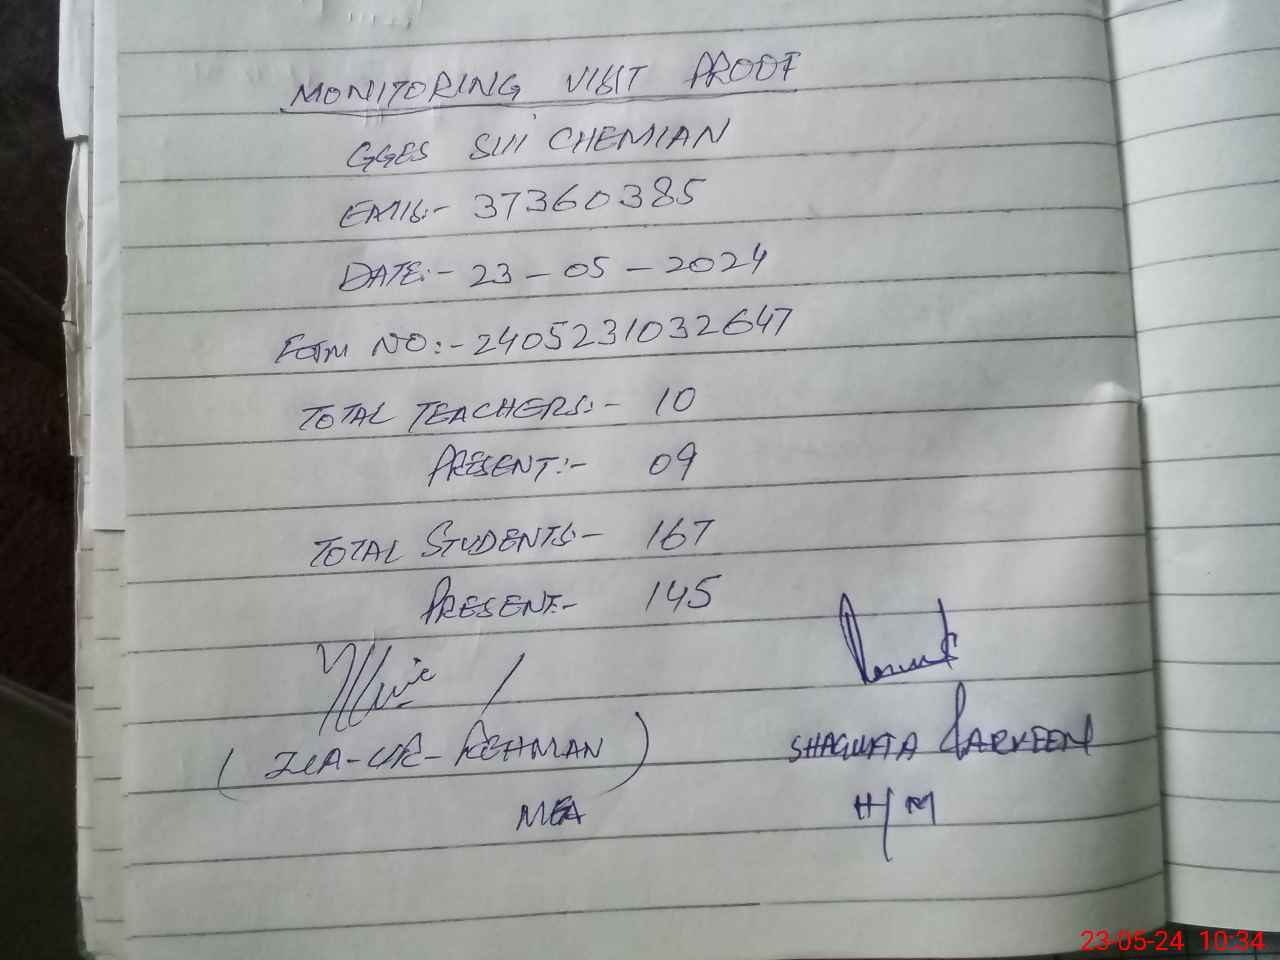 MONITORING VISIT PROOF
GGES SUI CHEMIAN
EMIS:- 37360385
DATE:- 23-05-2024
Form NO:- 2405231032647
TOTAL TEACHERS:- 10
PRESENT:- 09
TOTAL STUDENTS:- 167
PRESENT:- 145
(ZIA-UR-REHMAN)
SHAGUFTA PARVEEN
MEA
H/M
23-05-24 10:34